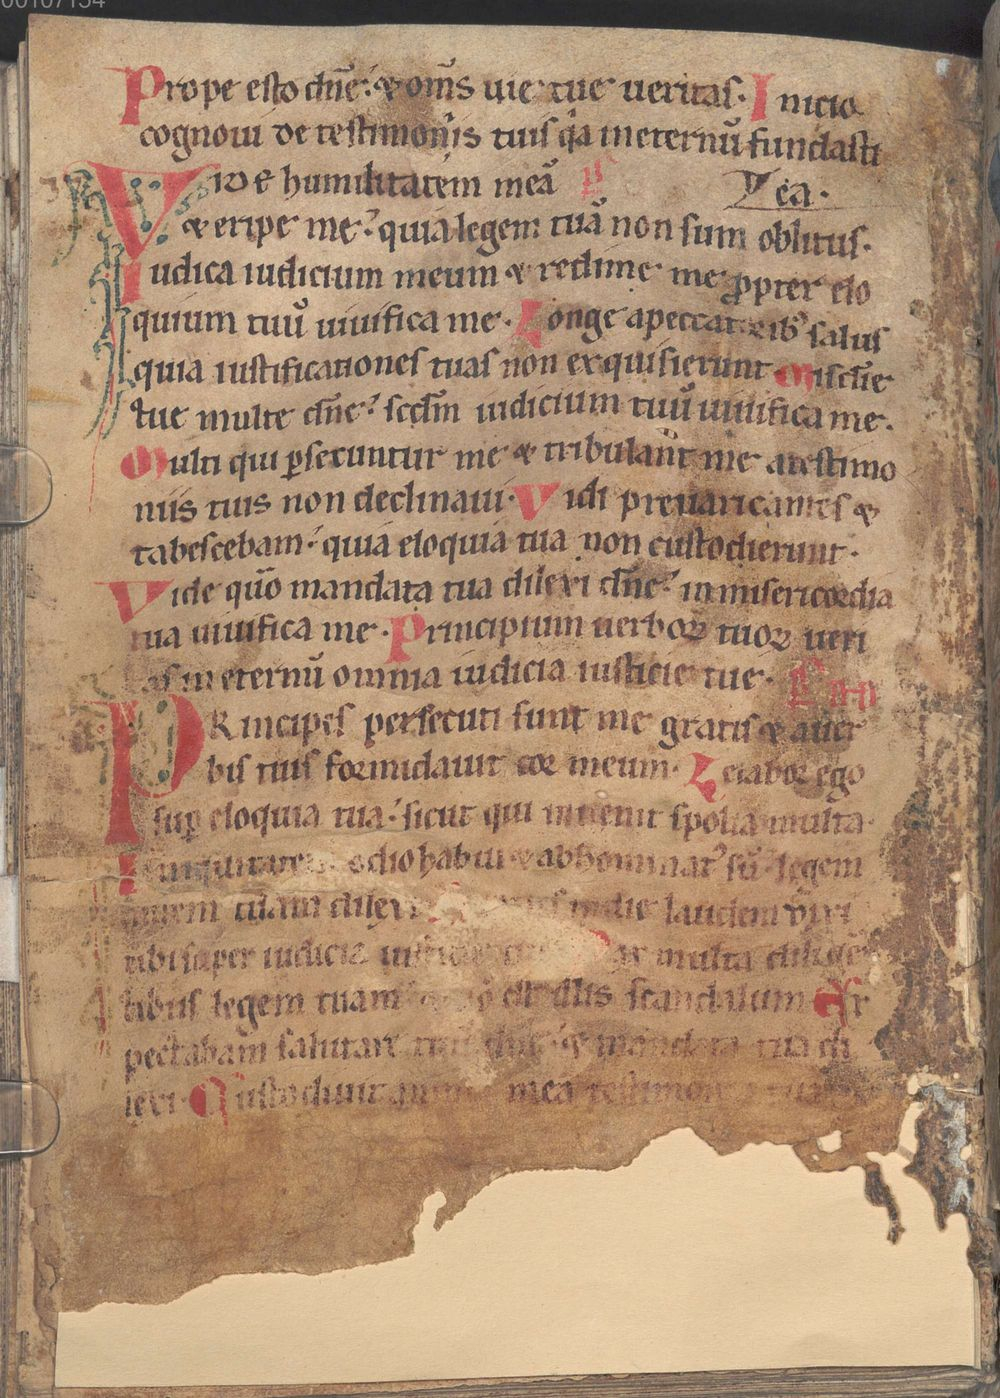 00107154
Prope esto dñe. ⁊ om̃s uie tue ueritas. Inicio
cognoui de testimoniis tuis q̃a ineternũ fundasti
Vide humilitatem meã
⁊ eripe me. quia legem tuã non sum oblitus.
Iudica iudicium meum ⁊ redime me propter elo
quium tuũ uiuifica me. Longe a peccatorib' salus
quia iustificationes tuas non exquisierunt. Mise
tue multe dñe. scđm iudicium tuũ uiuifica me.
Multi qui ꝑsecuntur me ⁊ tribulañt me a testimo
niis tuis non declinaui. Vidi preuaricantes ⁊
tabescebam. quia eloquia tua non custodierunt.
Vide quõ mandata tua dilexi dñe. in misericordia
tua uiuifica me. Principium uerboꝝ tuoꝝ ueri
tas ineternũ omnia iudicia iusticie tue.
PRincipes persecuti sunt me gratis ⁊ a uer
bis tuis formidauit cor meum. Letabor ego
suꝑ eloquia tua. sicut qui inuenit spolia multa.
Iniquitatem odio habui ⁊ abhominat' sũ. legem
autem tuam dilexi in die laudem dixi
tibi super iudicia iusticie Pax multa diligen
tibus legem tuam ⁊ illis scandalum. Ex
pectabam salutare tuũ dñe. ⁊ mandata tua di
lexi. Custodiuit anima mea testimonia tua